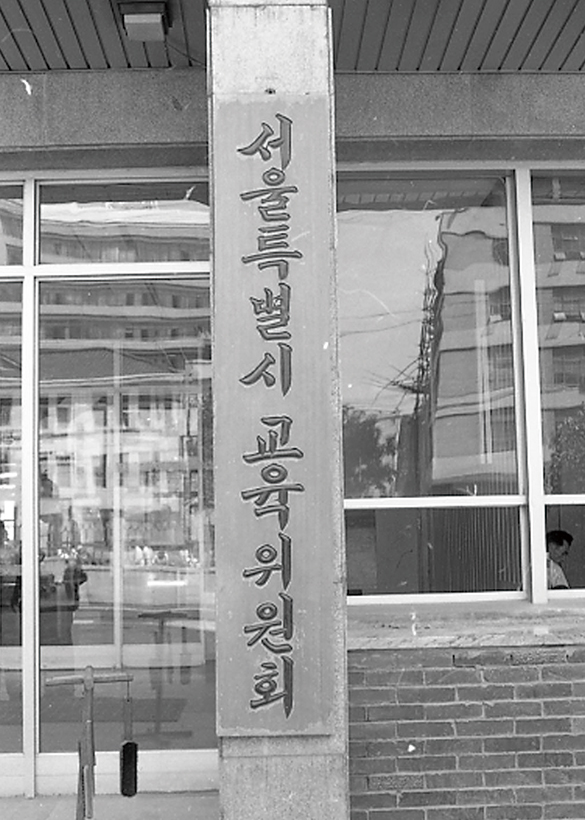 서울특별시 교육위원회